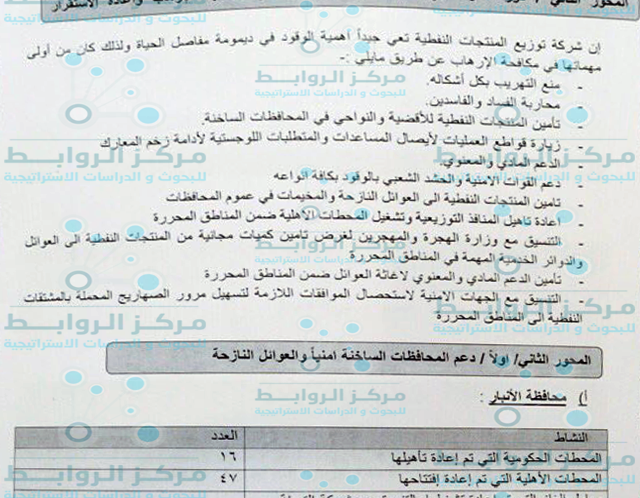 المحور الثاني
إن شركة توزيع المنتجات النفطية تعي جيداً أهمية الوقود في ديمومة مفاصل الحياة ولذلك كان من أولى
مهماتها في مكافحة الإرهاب عن طريق مايلي :-
- منع التهريب بكل أشكاله.
- محاربة الفساد والفاسدين.
- تأمين المنتجات النفطية للأقضية والنواحي في المحافظات الساخنة.
- زيارة قواطع العمليات لأيصال المساعدات والمتطلبات اللوجستية لأدامة زخم المعارك
- الدعم المادي والمعنوي.
- دعم القوات الامنية والحشد الشعبي بالوقود بكافة انواعه
- تامين المنتجات النفطية الى العوائل النازحة والمخيمات في عموم المحافظات
- اعادة تاهيل المنافذ التوزيعية وتشغيل المحطات الاهلية ضمن المناطق المحررة
- التنسيق مع وزارة الهجرة والمهجرين لغرض تامين كميات مجانية من المنتجات النفطية الى العوائل
والدوائر الخدمية المهمة في المناطق المحررة
- تأمين الدعم المادي والمعنوي لاغاثة العوائل ضمن المناطق المحررة
- التنسيق مع الجهات الامنية لاستحصال الموافقات اللازمة لتسهيل مرور الصهاريج المحملة بالمشتقات
النفطية الى المناطق المحررة
المحور الثاني/ اولاً / دعم المحافظات الساخنة امنياً والعوائل النازحة
أ) محافظة الأنبار :
النشاط العدد
المحطات الحكومية التي تم إعادة تأهيلها ١٦
المحطات الأهلية التي تم إعادة إفتتاحها ٤٧
مركز الروابط
للبحوث و الدراسات الاستراتيجية